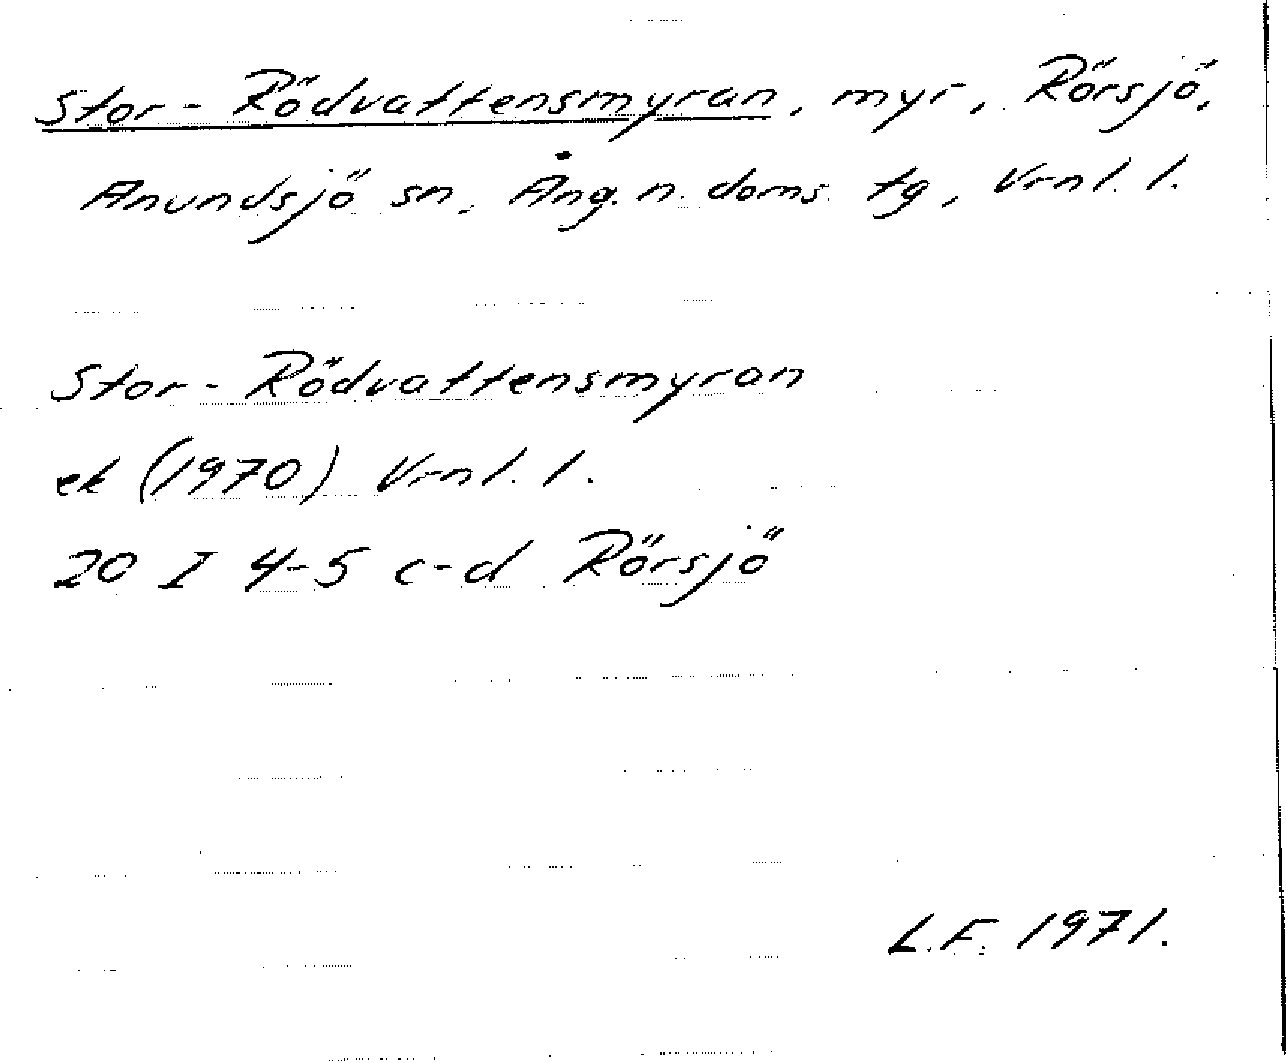 Stor-Rödvattensmyran, myr, Rörsjö,
Anundsjö sn, Ång. n. doms. tg, Vrnl. l.
Stor-Rödvattensmyran
ek (1970) Vrnl. l.
20 I 4-5 c-d Rörsjö
L.F. 1971.